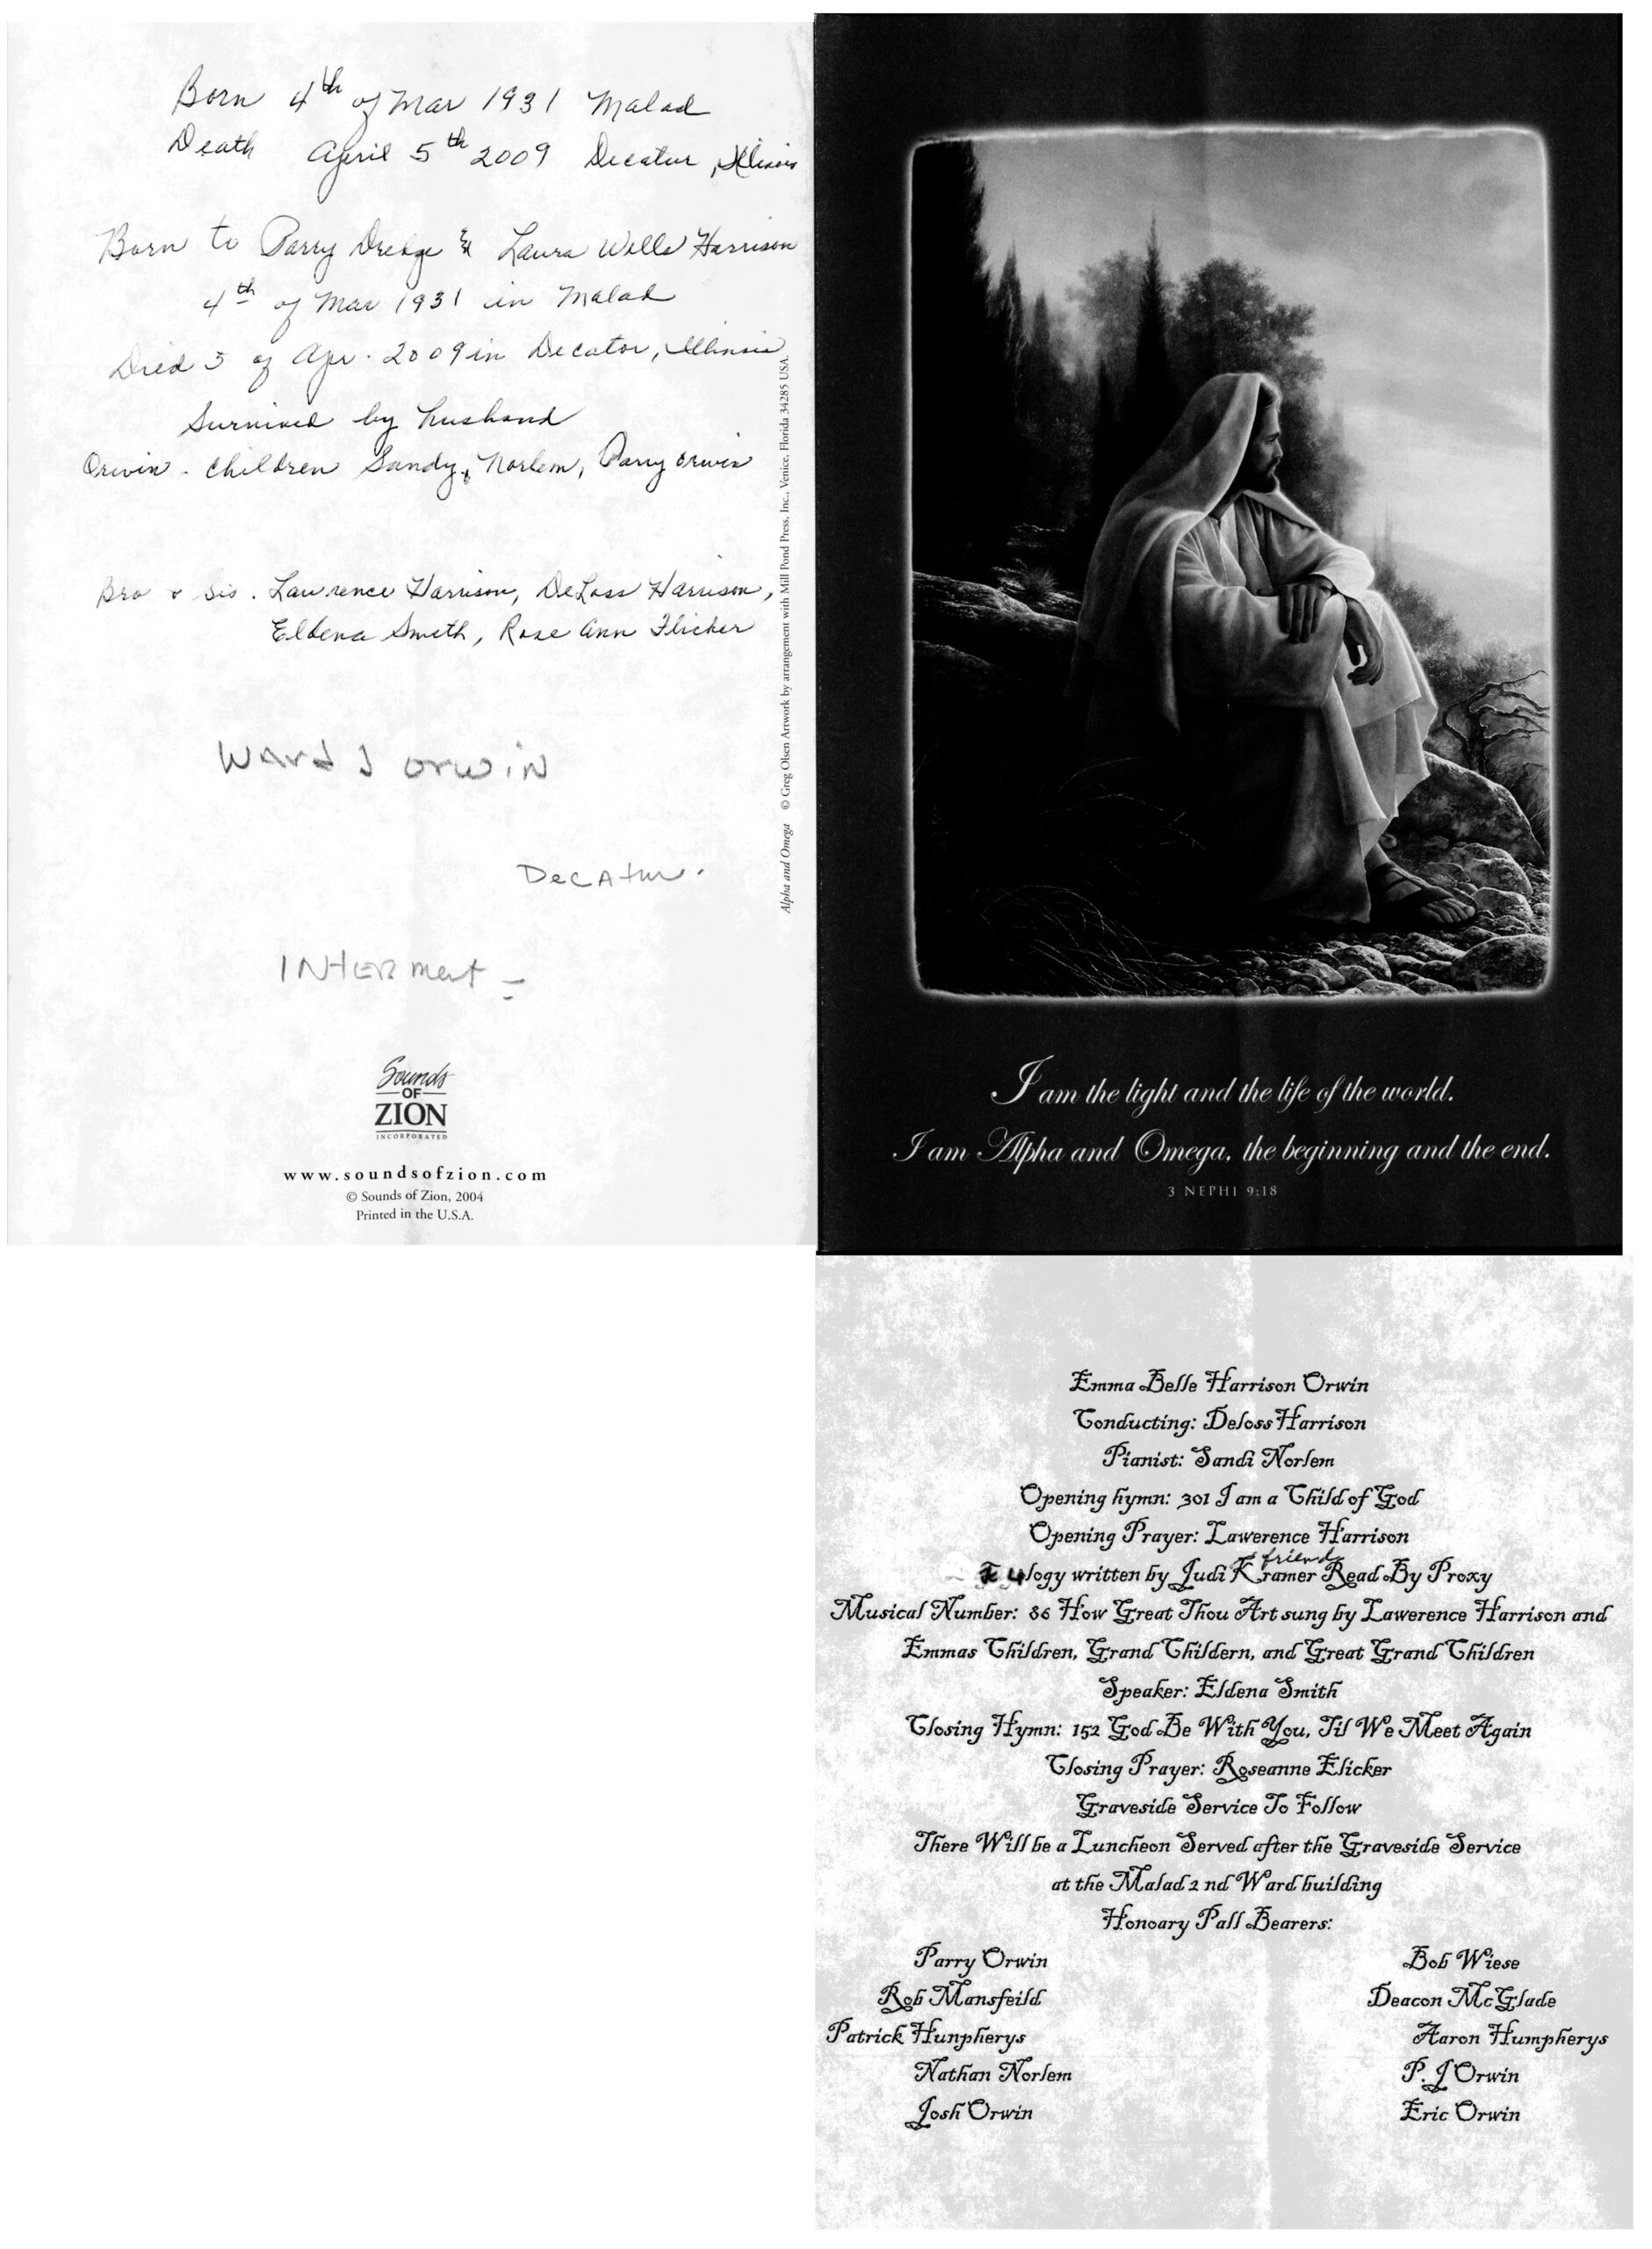 Born 4th of Mar 1931 Malad
Death April 5th 2009 Decatur, Illinois
Born to Parry Dredge & Laura Wells Harrison
4th of Mar 1931 in Malad
Died 5 of Apr. 2009 in Decator, Illinois
Survived by husband
Orwin - Children Sandy, Norlem, Parry Orwin
Bro & Sis. Lawrence Harrison, DeLoss Harrison,
Eldena Smith, Rose Ann Flicker
Ward J Orwin
Decatur.
INTERment -
Alpha and Omega © Greg Olsen Artwork by arrangement with Mill Pond Press, Inc., Venice, Florida 34285 USA.
Sounds
OF
ZION
INCORPORATED
www.soundsofzion.com
© Sounds of Zion, 2004
Printed in the U.S.A.
I am the light and the life of the world.
I am Alpha and Omega, the beginning and the end.
3 NEPHI 9:18
Emma Belle Harrison Orwin
Conducting: Deloss Harrison
Pianist: Sandi Norlem
Opening hymn: 301 I am a Child of God
Opening Prayer: Lawerence Harrison
friend
Eulogy written by Judi Kramer Read By Proxy
Musical Number: 86 How Great Thou Art sung by Lawerence Harrison and
Emmas Children, Grand Childern, and Great Grand Children
Speaker: Eldena Smith
Closing Hymn: 152 God Be With You, Til We Meet Again
Closing Prayer: Roseanne Elicker
Graveside Service To Follow
There Will be a Luncheon Served after the Graveside Service
at the Malad 2 nd Ward building
Honoary Pall Bearers:
Parry Orwin
Bob Wiese
Rob Mansfeild
Deacon McGlade
Patrick Hunpherys
Aaron Humpherys
Nathan Norlem
P.J Orwin
Josh Orwin
Eric Orwin